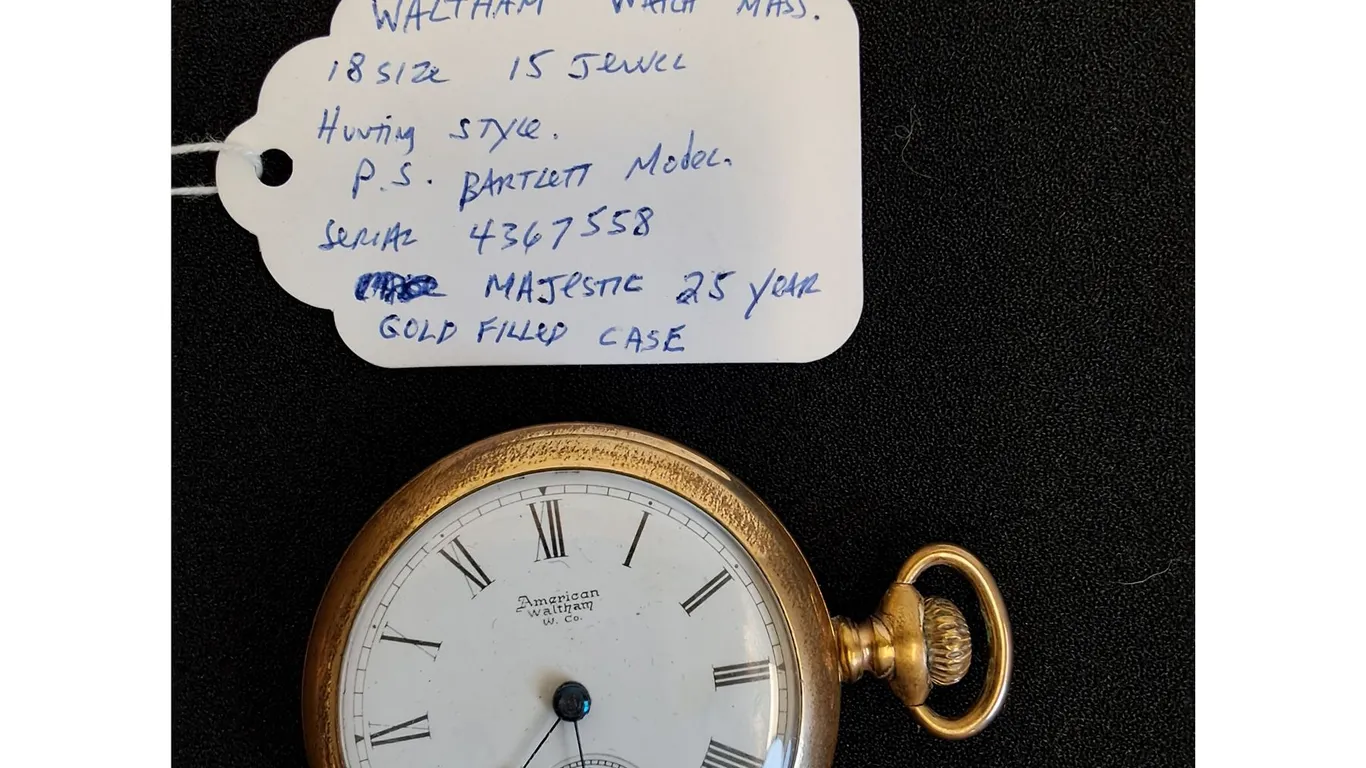 WALTHAM WATCH MASS.
18 SIZE 15 JEWEL
Hunting STYLE.
P.S. BARTLETT MODEL.
SERIAL 4367558
MAJESTIC 25 YEAR
GOLD FILLED CASE
XII
I
II
III
IIII
IX
X
XI
American
Waltham
W. Co.